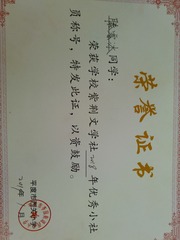 荣誉证书
同学：
荣获学校紫荆文学社2018年优秀小社
员称号，特发此证，以资鼓励。
平度市